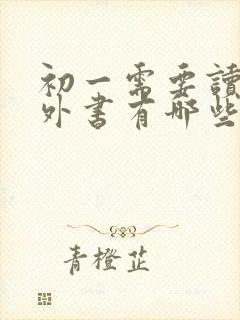 初一需要讀
外書有哪些
青橙芷